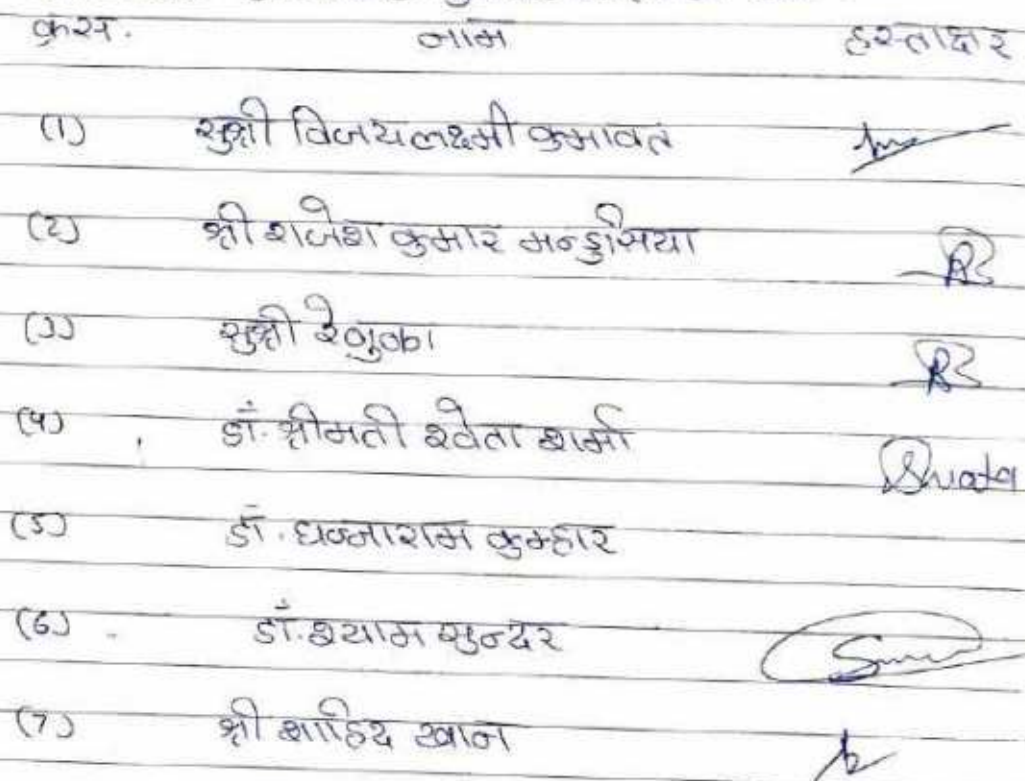 क्र.स. नाम हस्ताक्षर
(1) सुश्री विजयलक्ष्मी कुमावत
(2) श्री राजेश कुमार मन्डुसिया
(3) सुश्री रेणुका
(4) डॉ. श्रीमती श्वेता शर्मा Shweta
(5) डॉ. धन्नाराम कुम्हार
(6) डॉ. श्याम सुन्दर
(7) श्री शाहिद खान